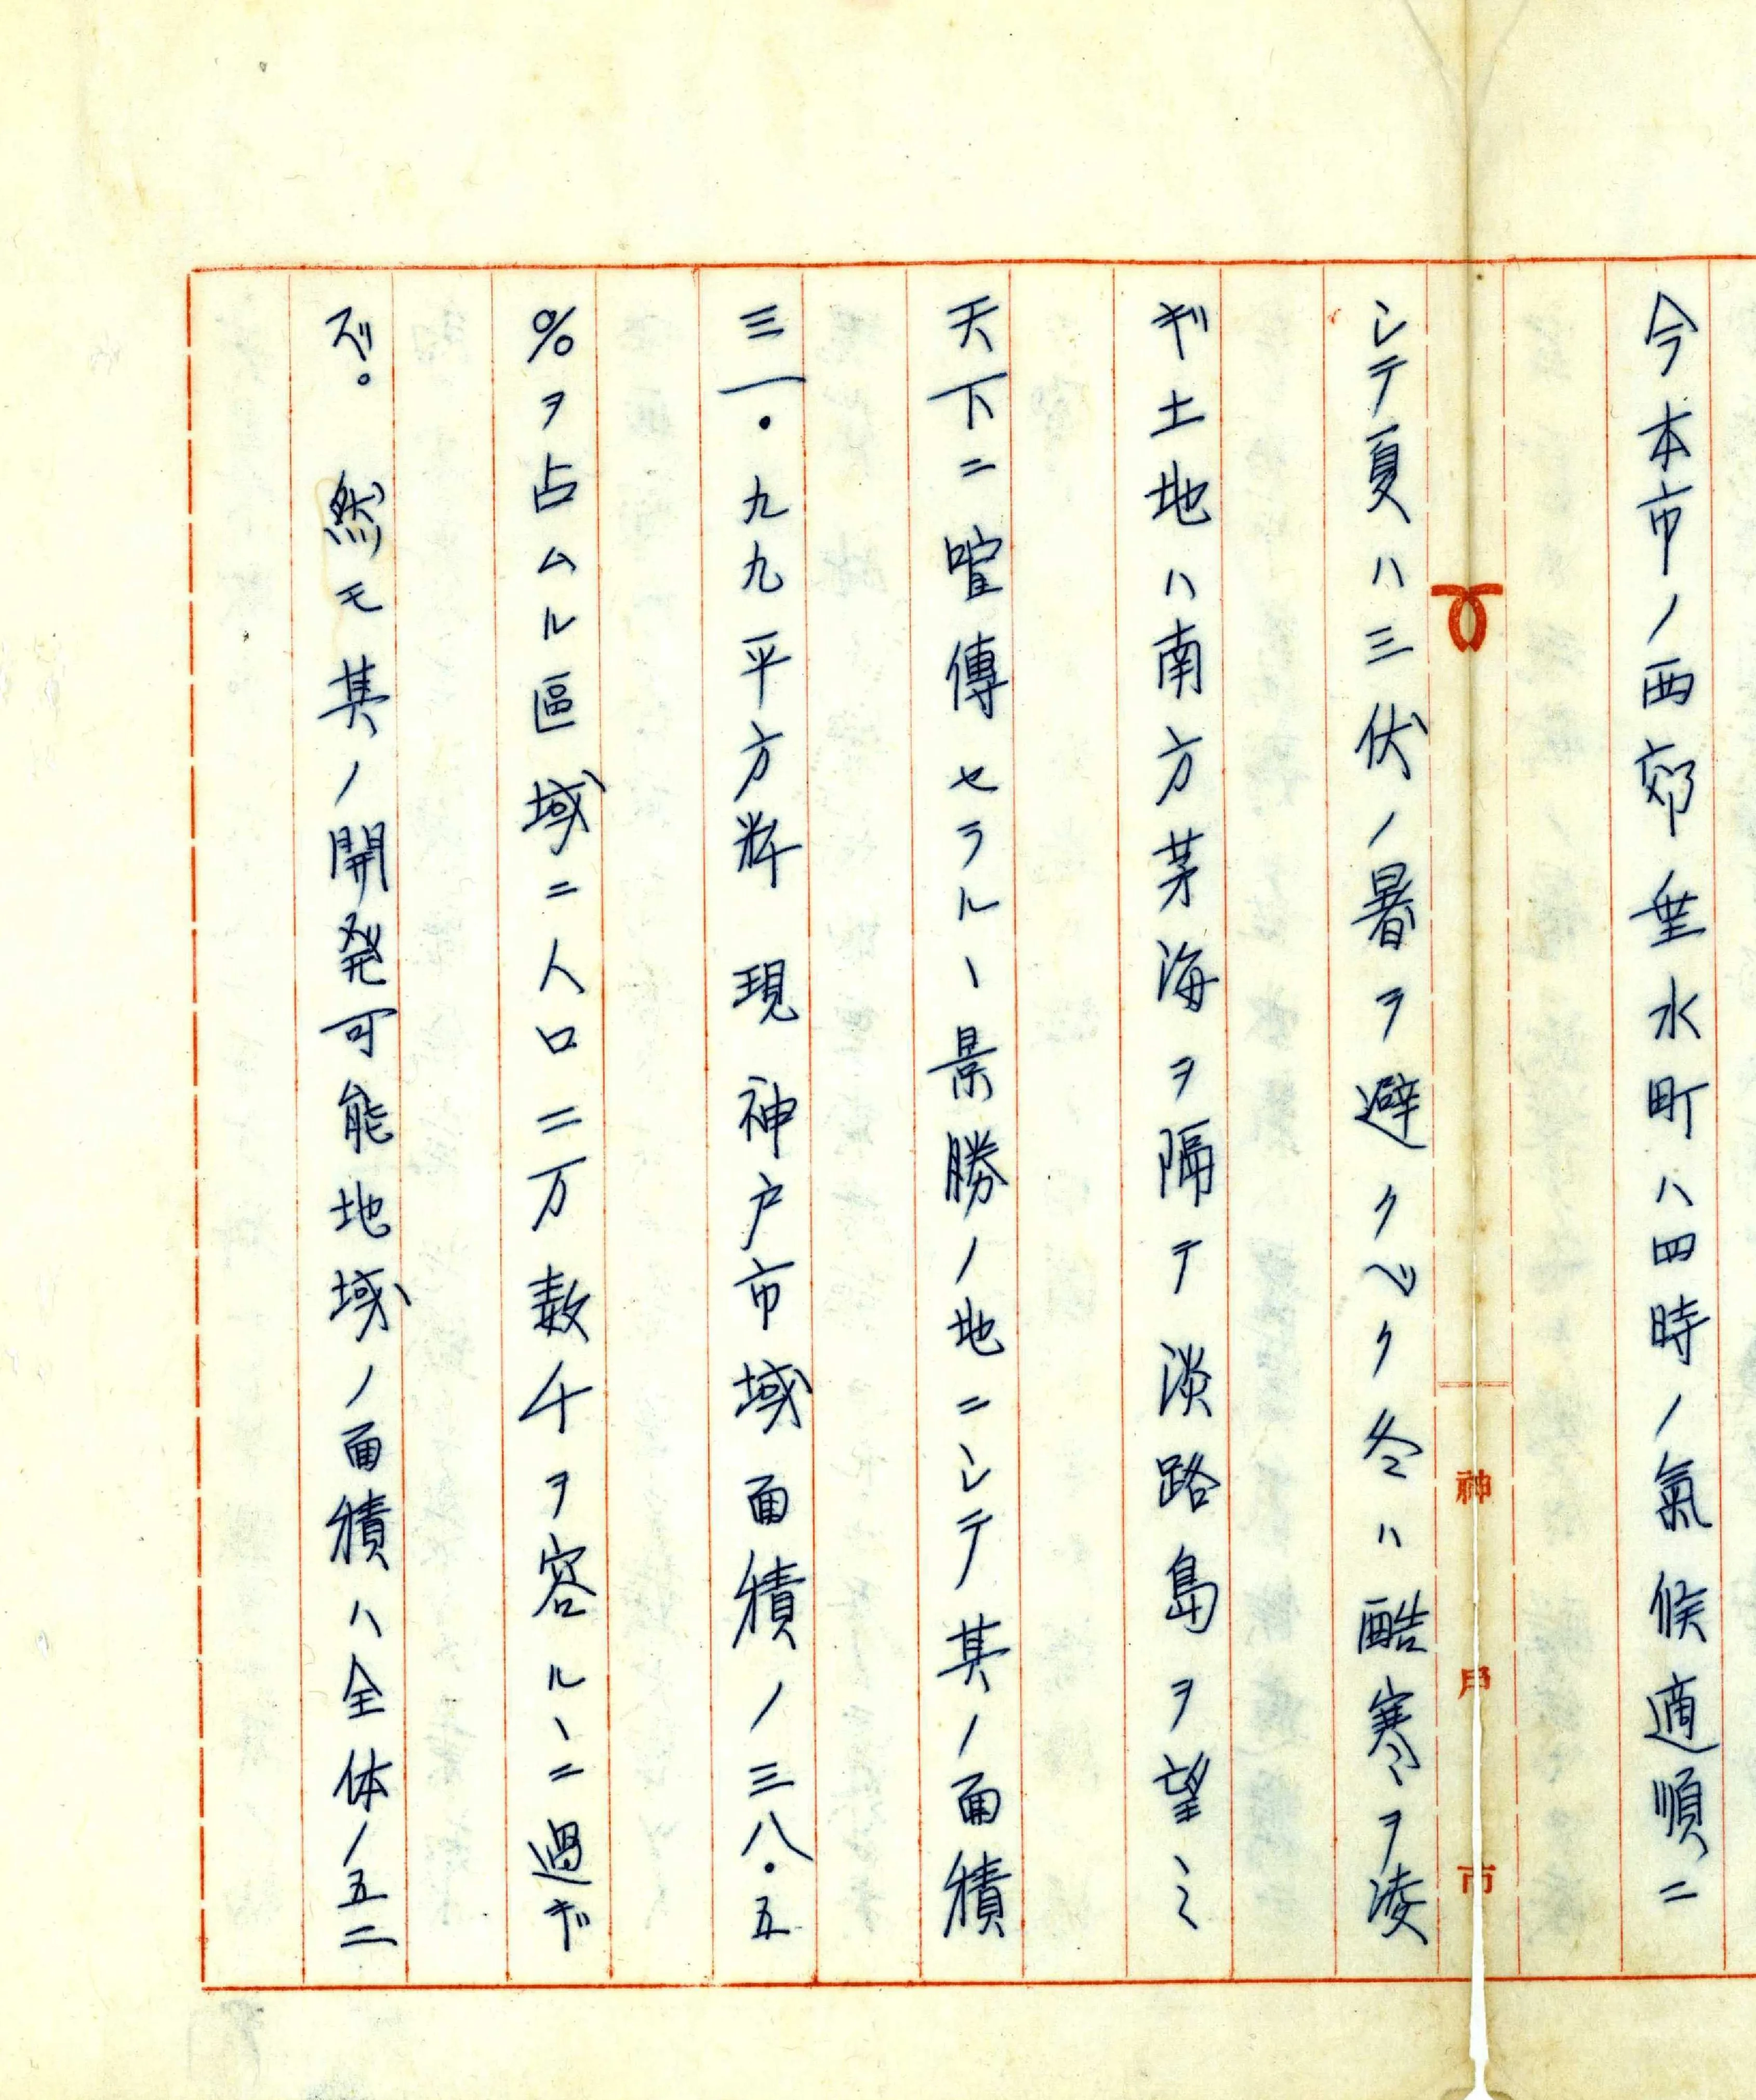 今本市ノ西郊垂水町ハ四時ノ氣候適順ニ
シテ夏ハ三伏ノ暑ヲ避クベク冬ハ酷寒ヲ凌
ギ土地ハ南方茅海ヲ隔テ淡路島ヲ望ミ
天下ニ喧傳セラルヽ景勝ノ地ニシテ其ノ面積
三一・九九平方粁　現神戸市域面積ノ三八・五
%ヲ占ムル區域ニ人口二万数千ヲ容ルヽニ過ギ
ズ。　然モ其ノ開発可能地域ノ面積ハ全体ノ五二
神戸市